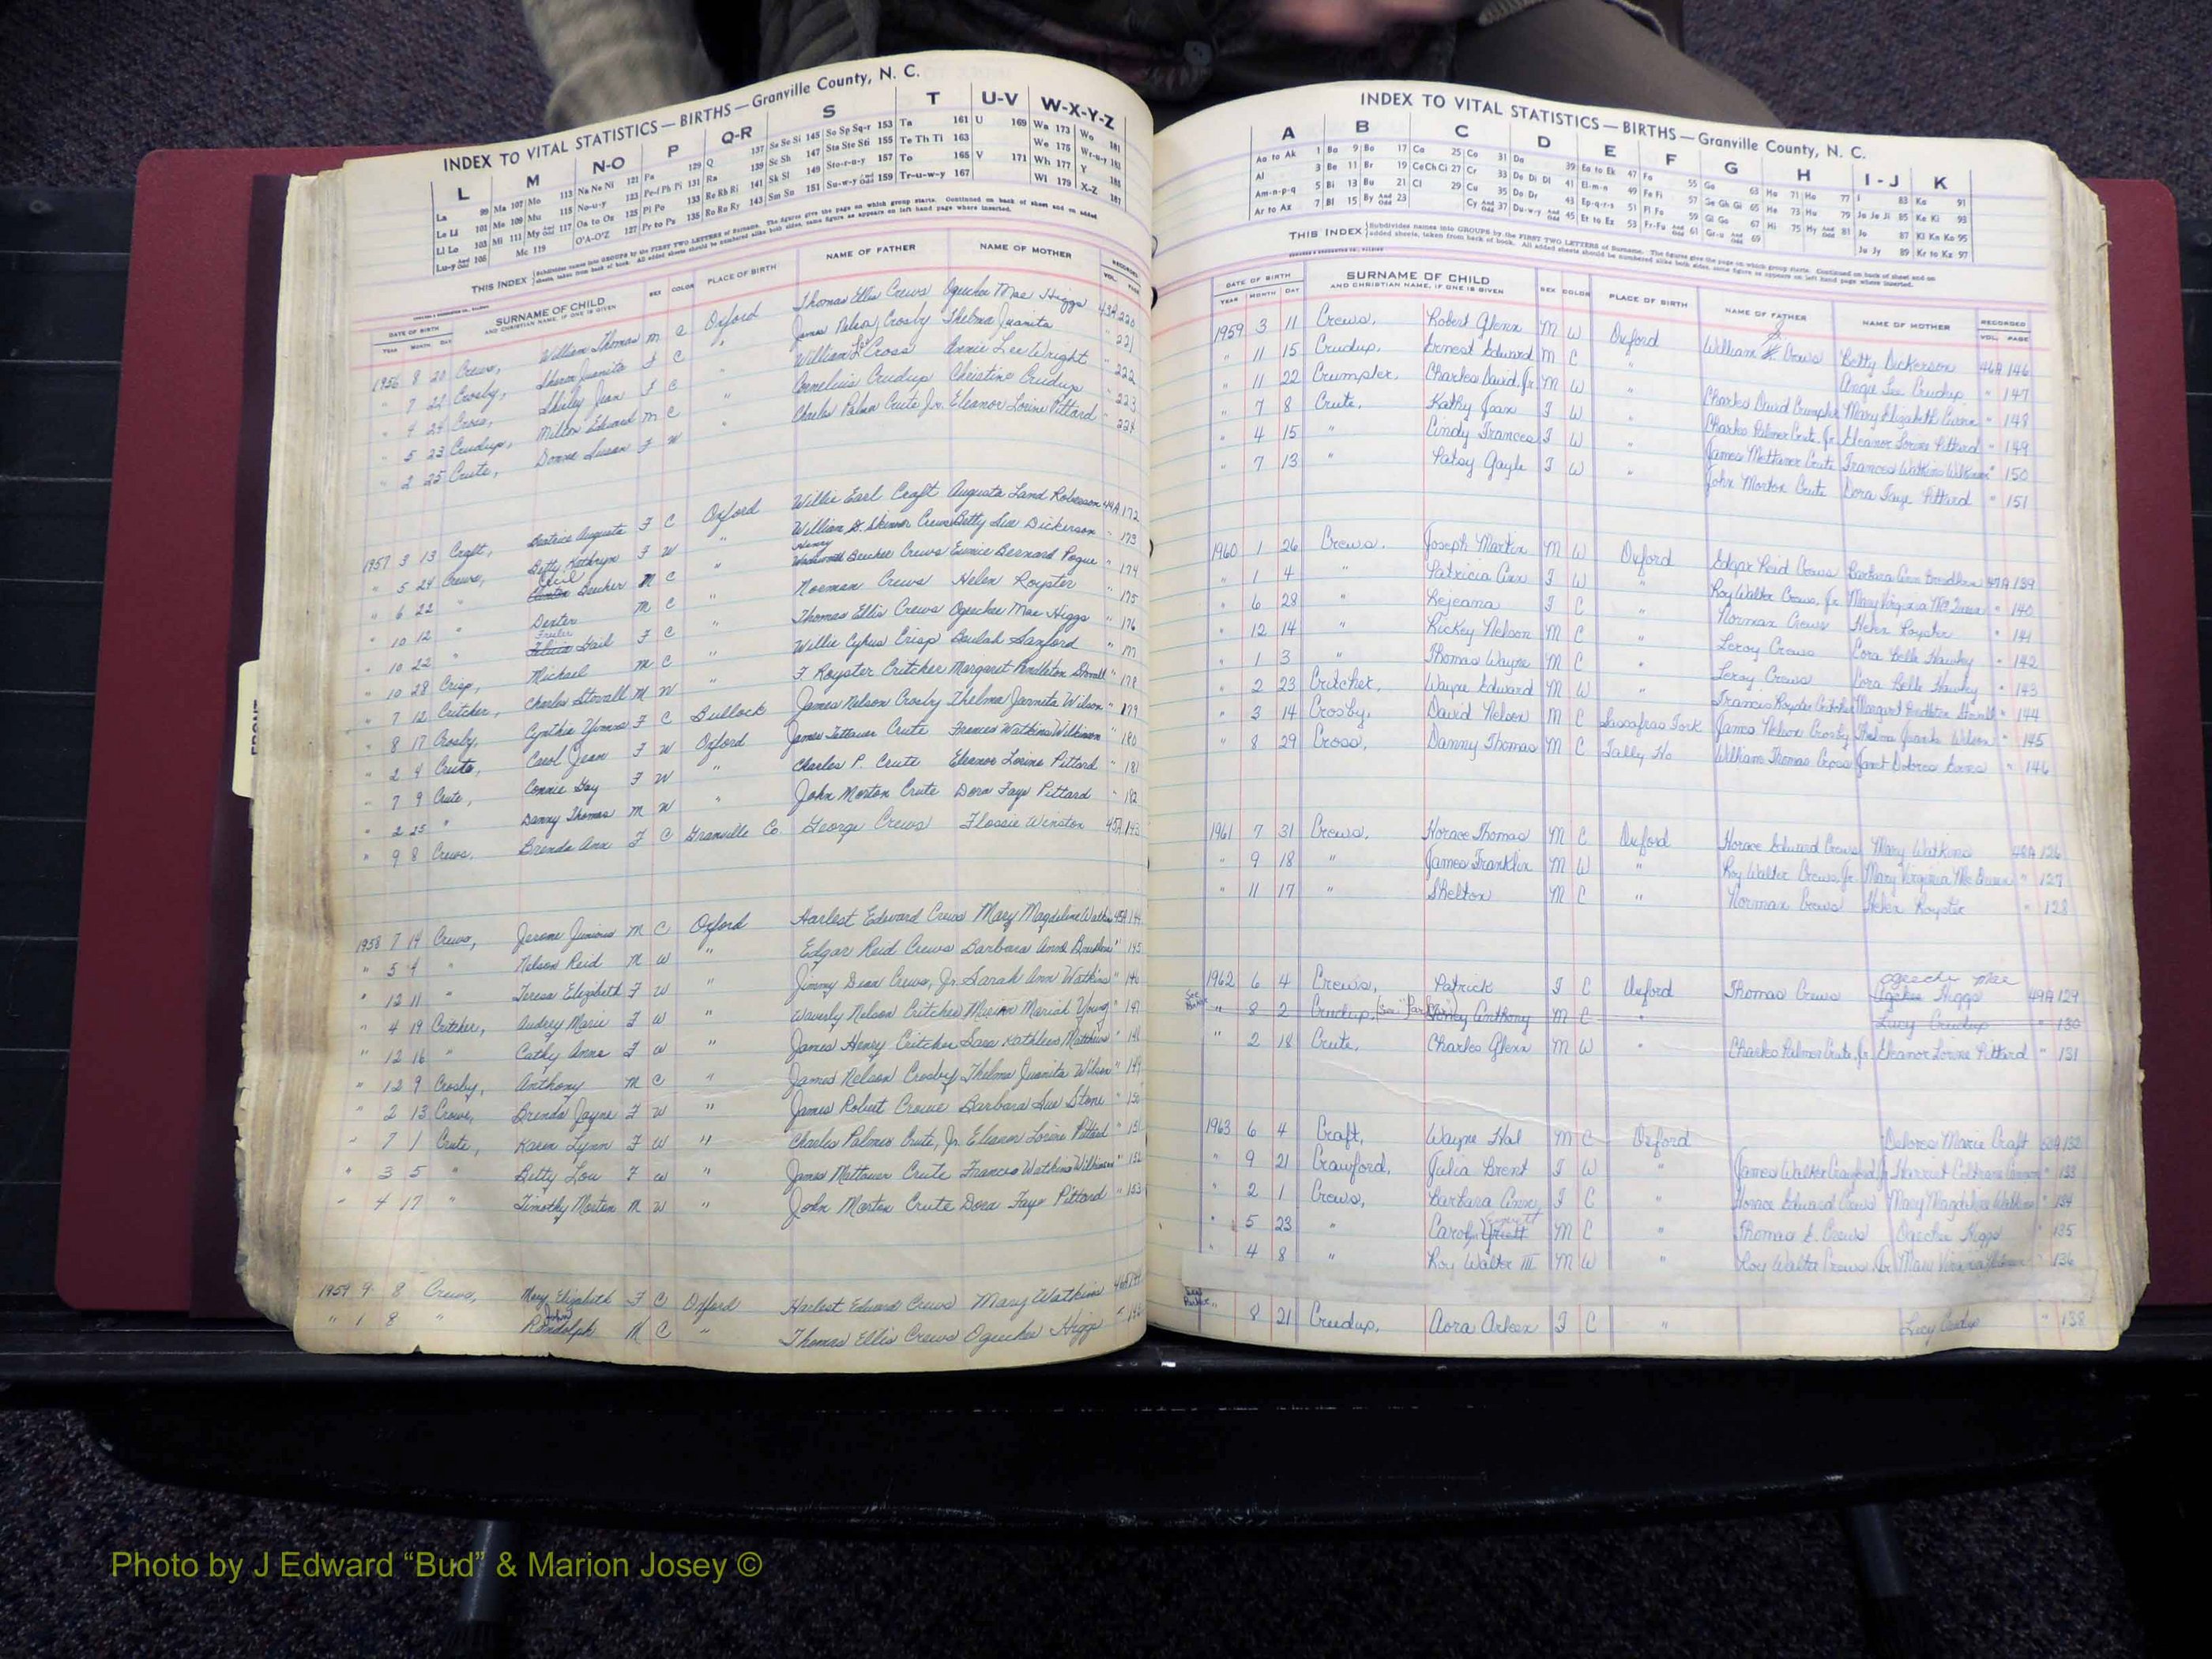 INDEX TO VITAL STATISTICS — BIRTHS — Granville County, N. C.
L M N-O P Q-R S T U-V W-X-Y-Z
La 99 Ma 107 Mo 113 Na Ne Ni 121 Pa 129 Q 137 Sa Se Si 145 So Sp Sq-r 153 Ta 161 U 169 Wa 173 Wo 181
Le Li 101 Me 109 Mu 115 No-u-y 123 Pe-f Ph Pi 131 Ra 139 Sc Sh 147 Sta Ste Sti 155 Te Th Ti 163 We 175 Wr-u-y 183
Ll Lo 103 Mi 111 My And Odd 117 Oa to Oz 125 Pl Po 133 Re Rh Ri 141 Sk Sl 149 Sto-r-u-y 157 To 165 V 171 Wh 177 Y 185
Lu-y And Odd 105 Mc 119 O'A-O'Z 127 Pr to Ps 135 Ro Ru Ry 143 Sm Sn 151 Su-w-y And Odd 159 Tr-u-w-y 167 Wi 179 X-Z 187
THIS INDEX Subdivides names into GROUPS by the FIRST TWO LETTERS of Surname. The figures give the page on which group starts. Continued on back of sheet and on added
sheets, taken from back of book. All added sheets should be numbered alike both sides, same figure as appears on left hand page where inserted.
DATE OF BIRTH SURNAME OF CHILD SEX COLOR PLACE OF BIRTH NAME OF FATHER NAME OF MOTHER RECORDED
YEAR MONTH DAY AND CHRISTIAN NAME, IF ONE IS GIVEN VOL. PAGE
1956 8 20 Crews, William Thomas M C Oxford Thomas Ellis Crews Ogeechee Mae Higgs 43A 220
" 7 22 Crosby, Sharon Juanita F C " James Nelson Crosby Thelma Juanita " 221
" 4 24 Cross, Shirley Jean F C William Lee Cross Annie Lee Wright " 222
" 5 23 Crudup, Milton Edward M C " Cornelius Crudup Christine Crudup " 223
" 2 25 Crute, Donna Susan F W Charles Palmer Crute Jr. Eleanor Lorine Pittard " 224
1957 3 13 Craft, Beatrice Augusta F C Oxford Willie Earl Craft Augusta Land Roberson 44A 172
" 5 24 Crews, Betty Kathryn F W " William S. Skinner Crews Betty Sue Dickerson " 173
" 6 22 " Cecil Beecher M C " Henry Beecher Crews Eunice Bernard Pogue " 174
" 10 12 " Dexter M C " Norman Crews Helen Royster " 175
" 10 22 " Gail F C " Thomas Ellis Crews Ogeechee Mae Higgs " 176
" 10 28 Crisp, Michael M C " Willie Cyrus Crisp Beulah Sanford " 177
" 7 12 Critcher, Charles Stovall M W " F. Royster Critcher Margaret Pendleton Stovall " 178
" 8 17 Crosby, Cynthia F C Bullock James Nelson Crosby Thelma Juanita Wilson " 179
" 2 4 Crute, Carol Jean F W Oxford James Crute Frances Watkins Wilkinson " 180
" 7 9 Crute, Connie Gay F W " Charles P. Crute Eleanor Lorine Pittard " 181
" 2 25 " Danny Thomas M W " John Morton Crute Dora Faye Pittard " 182
" 9 8 Crews, Brenda Ann F C Granville Co. George Crews Flossie Winston 45A 143
1958 7 14 Crews, Jerome Junious M C Oxford Harlest Edward Crews Mary Magdeline Watkins 45A 144
" 5 4 " Nelson Reid M W " Edgar Reid Crews Barbara Ann " 145
" 12 11 " Teresa Elizabeth F W " Jimmy Dean Crews, Jr. Sarah Ann Watkins " 146
" 4 19 Critcher, Audrey Marie F W " Waverly Nelson Critcher Marian Mariah Young " 147
" 12 16 " Cathy Anne F W " James Henry Critcher Sara Kathleen Matthews " 148
" 12 9 Crosby, Anthony M C " James Nelson Crosby Thelma Juanita Wilson " 149
" 2 13 Crowe, Brenda Jayne F W " James Robert Crowe Barbara Sue Stone " 150
" 7 1 Crute, Karen Lynn F W " Charles Palmer Crute, Jr. Eleanor Lorine Pittard " 151
" 3 5 " Betty Lou F W " James Mettauer Crute Frances Watkins Wilkinson " 152
" 4 17 " Timothy Morton M W " John Morton Crute Dora Faye Pittard " 153
1959 9 8 Crews, Mary Elizabeth F C Oxford Harlest Edward Crews Mary Watkins 46A 144
" 1 8 " John Randolph M C " Thomas Ellis Crews Ogeechee Higgs " 145
FRONT
INDEX TO VITAL STATISTICS — BIRTHS — Granville County, N. C.
A B C D E F G H I-J K
Aa to Ak 1 Ba 9 Bo 17 Ca 25 Co 31 Da 39 Ea to Ek 47 Fa 55 Ga 63 Ha 71 Ho 77 I 83 Ka 91
Al 3 Be 11 Br 19 Ce Ch Ci 27 Cr 33 De Di Dl 41 El-m-n 49 Fe Fi 57 Ge Gh Gi 65 He 73 Hu 79 Ja Je Ji 85 Ke Ki 93
Am-n-p-q 5 Bi 13 Bu 21 Cl 29 Cu 35 Do Dr 43 Ep-q-r-s 51 Fl Fo 59 Gl Go 67 Hi 75 Hy And Odd 81 Jo 87 Kl Kn Ko 95
Ar to Az 7 Bl 15 By And Odd 23 Cy And Odd 37 Du-w-y And Odd 45 Et to Ez 53 Fr-Fu And Odd 61 Gr-u And Odd 69 Ju Jy 89 Kr to Kz 97
THIS INDEX Subdivides names into GROUPS by the FIRST TWO LETTERS of Surname. The figures give the page on which group starts. Continued on back of sheet and on
added sheets, taken from back of book. All added sheets should be numbered alike both sides, same figure as appears on left hand page where inserted.
DATE OF BIRTH SURNAME OF CHILD SEX COLOR PLACE OF BIRTH NAME OF FATHER NAME OF MOTHER RECORDED
YEAR MONTH DAY AND CHRISTIAN NAME, IF ONE IS GIVEN VOL. PAGE
1959 3 11 Crews, Robert Glenn M W Oxford William S. Crews Betty Dickerson 46A 146
" 11 15 Crudup, Ernest Edward M C " Angie Lee Crudup " 147
" 11 22 Crumpler, Charles David, Jr. M W " Charles David Crumpler Mary Elizabeth " 148
" 7 8 Crute, Kathy Joan F W " Charles Palmer Crute, Jr. Eleanor Lorine Pittard " 149
" 4 15 " Cindy Frances F W " James Mettauer Crute Frances Watkins Wilkinson " 150
" 7 13 " Patsy Gayle F W " John Morton Crute Dora Faye Pittard " 151
1960 1 26 Crews, Joseph Martin M W Oxford Edgar Reid Crews Barbara Ann 47A 139
" 1 4 " Patricia Ann F W " Roy Walter Crews, Jr. Mary Virginia " 140
" 6 28 " Rejeana F C " Norman Crews Helen Royster " 141
" 12 14 " Rickey Nelson M C " Leroy Crews Cora Belle Hawley " 142
" 1 3 " Thomas Wayne M C " Leroy Crews Cora Belle Hawley " 143
" 2 23 Critcher, Wayne Edward M W " Francis Royster Critcher Margaret Pendleton Stovall " 144
" 3 14 Crosby, David Nelson M C Sassafras Fork James Nelson Crosby Thelma Juanita Wilson " 145
" 8 29 Cross, Danny Thomas M C Tally Ho William Thomas Cross Janet Dolores " 146
1961 7 31 Crews, Horace Thomas M C Oxford Horace Edward Crews Mary Watkins 48A 126
" 9 18 " James Franklin M W " Roy Walter Crews, Jr. Mary Virginia " 127
" 11 17 " Shelton M C " Norman Crews Helen Royster " 128
1962 6 4 Crews, Patrick F C Oxford Thomas Crews Ogeechee Mae Higgs 49A 129
See " 8 2 Crudup, Anthony M C " Lucy Crudup " 130
" 2 18 Crute, Charles Glenn M W " Charles Palmer Crute, Jr. Eleanor Lorine Pittard " 131
1963 6 4 Craft, Wayne Hal M C Oxford Delores Marie Craft 50A 132
" 9 21 Crawford, Julia Brent F W " James Walter Crawford, Jr. Harriet Coltrane " 133
" 2 1 Crews, Barbara Ann F C " Horace Edward Crews Mary Magdeline Watkins " 134
" 5 23 " Carol M C " Thomas E. Crews Ogeechee Higgs " 135
" 4 8 " Roy Walter III M W " Roy Walter Crews Jr. Mary Virginia " 136
" 8 21 Crudup, Aora Arleen F C " Lucy Crudup " 138
Photo by J Edward “Bud” & Marion Josey ©